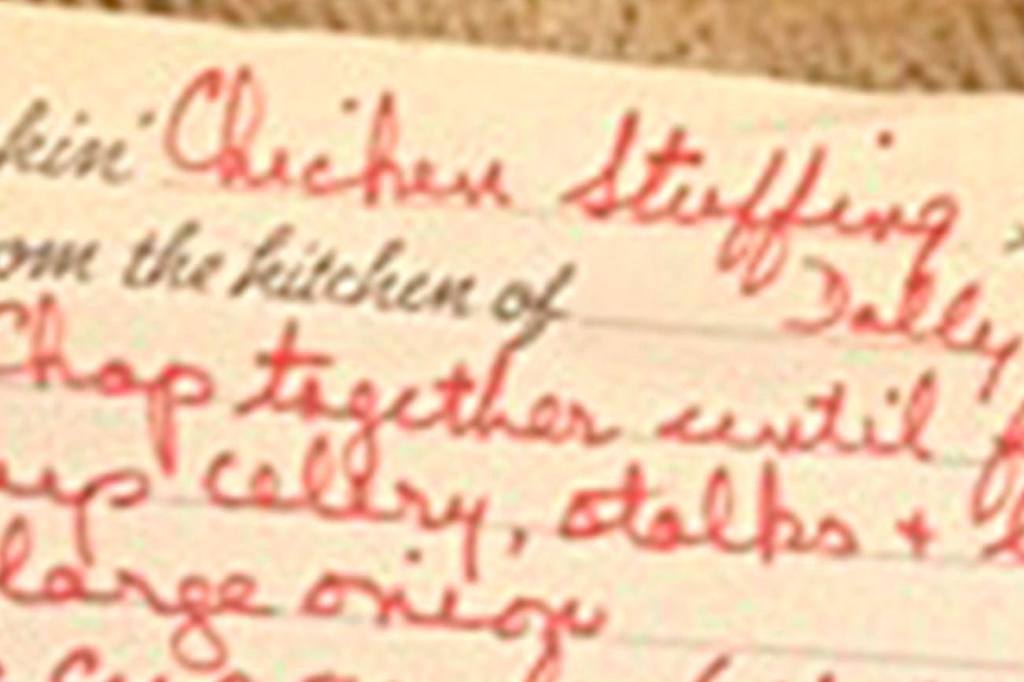 kin' Chicken Stuffing
om the kitchen of Dolley
Chop together until f
up celery, stalks +
large onion